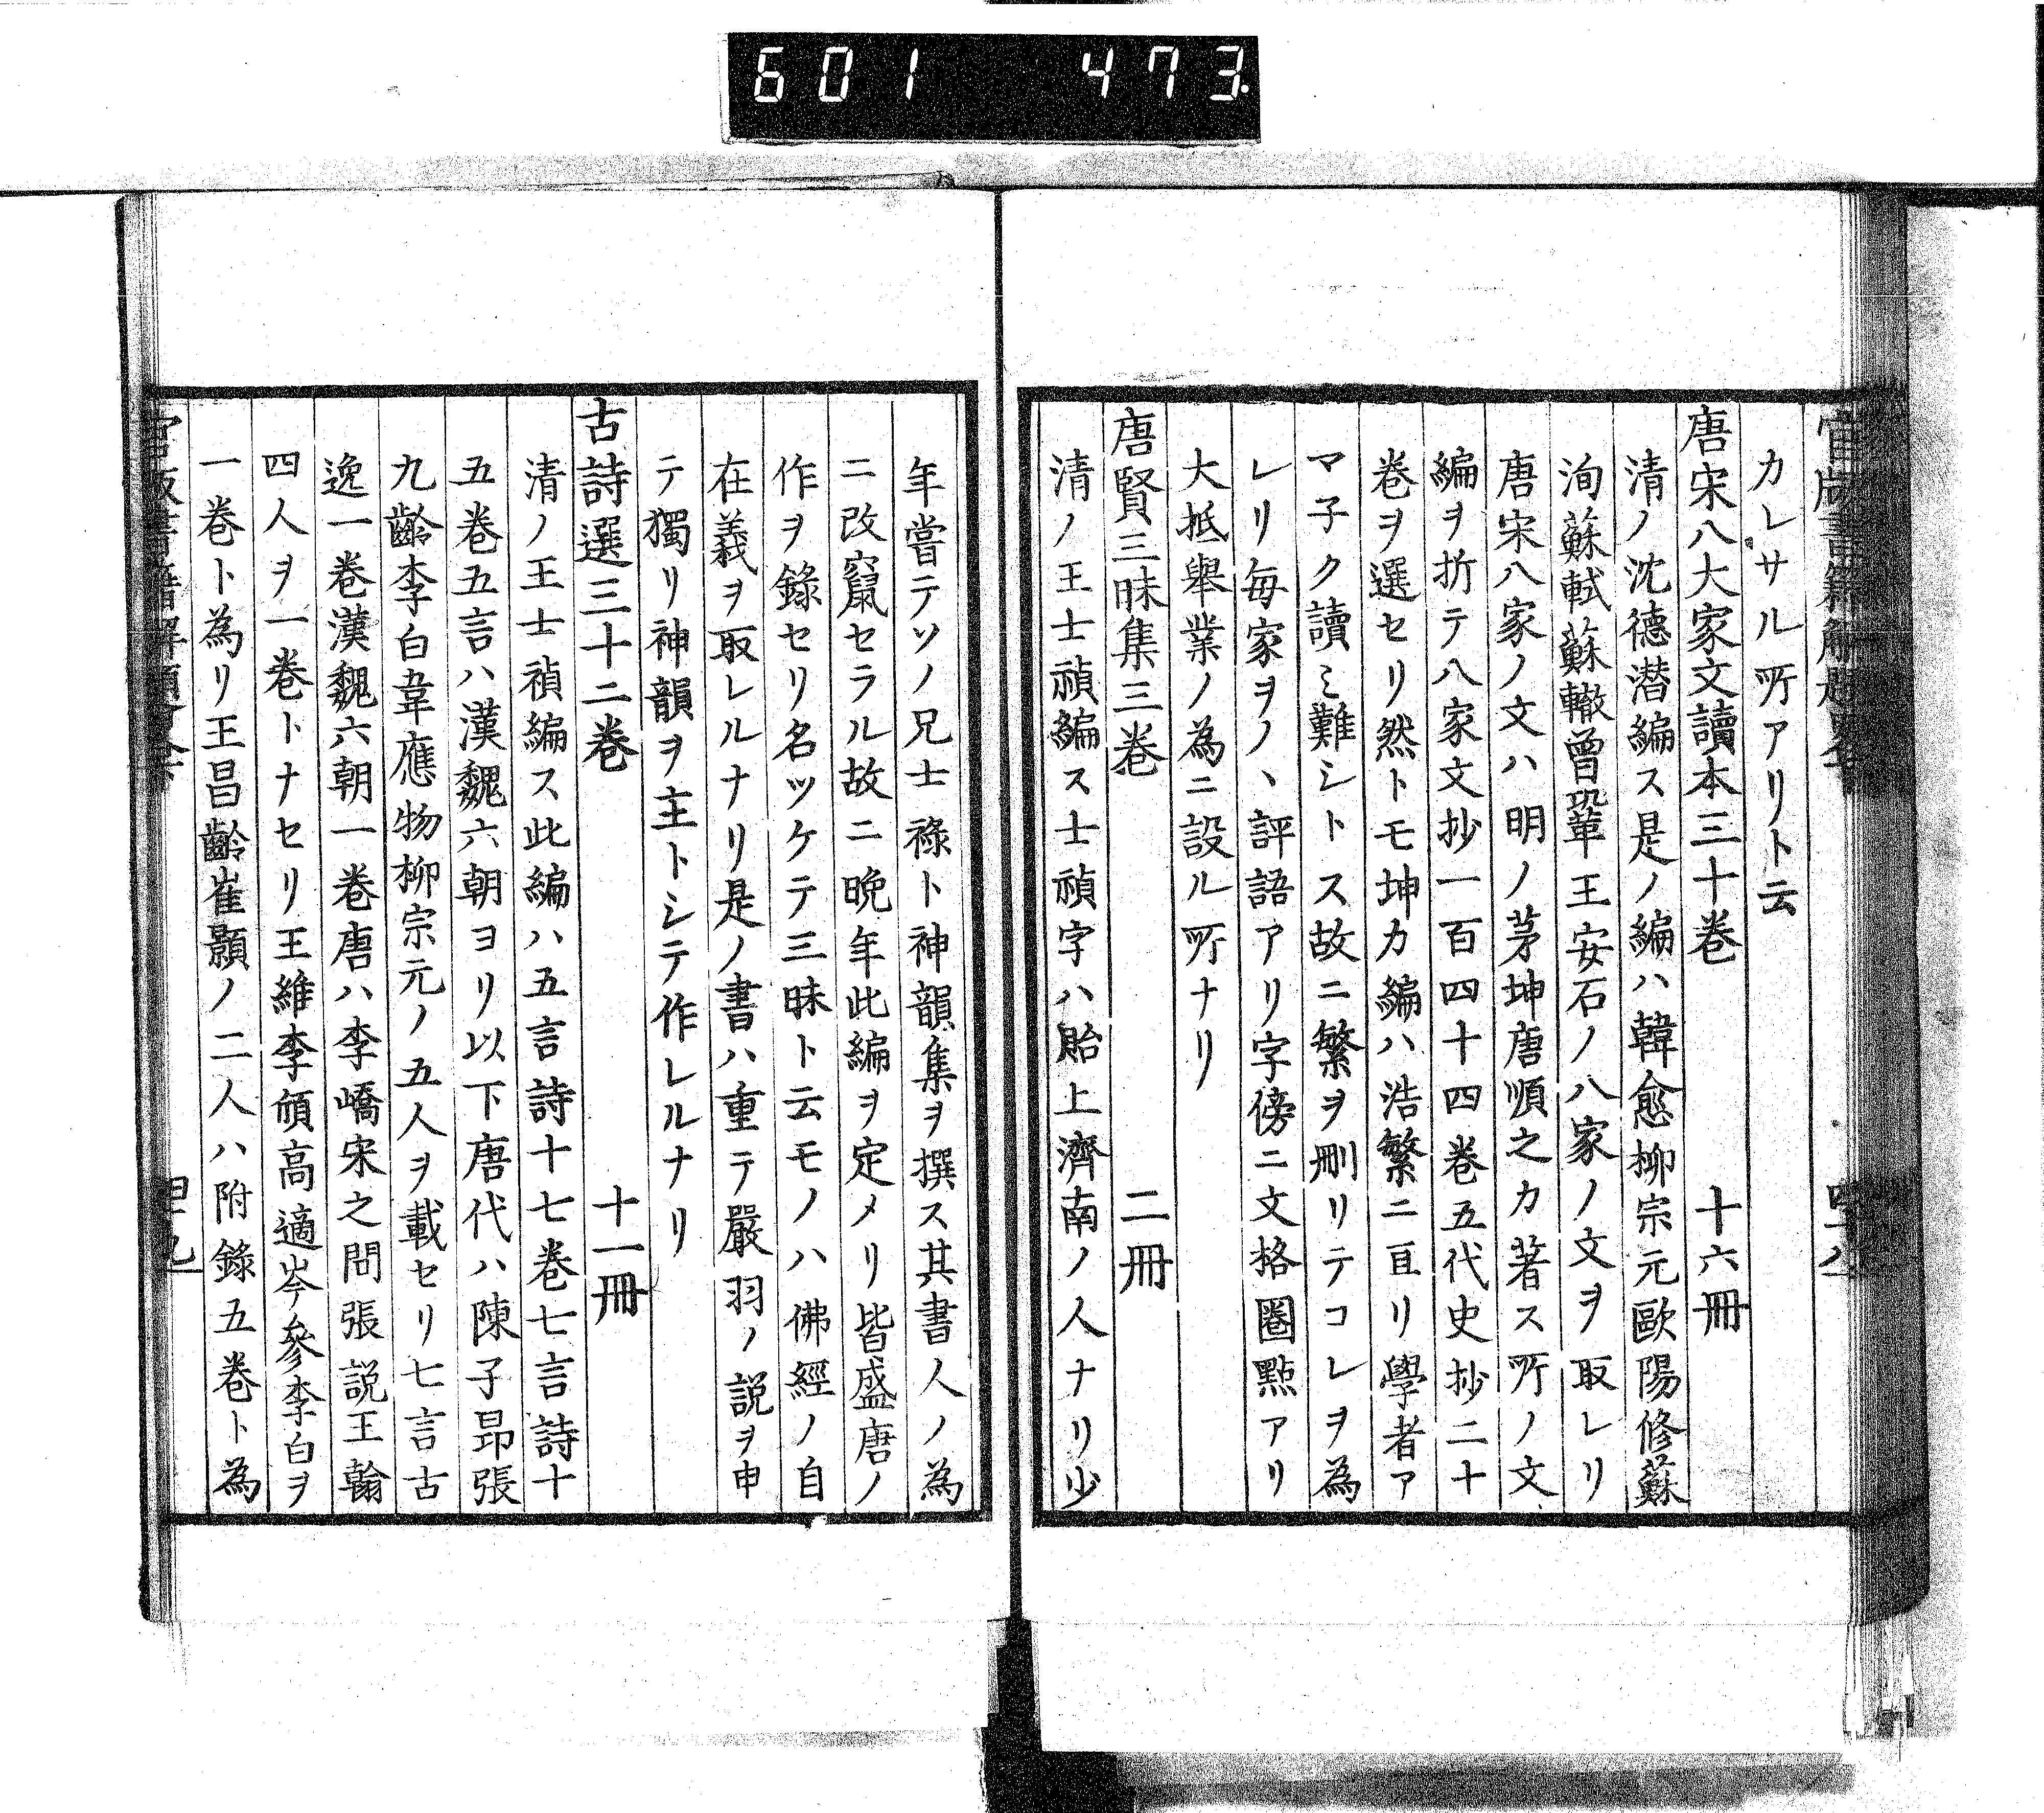 601 473.
官版書籍解題畧
カレサル所アリト云
唐宋八大家文讀本三十巻 十六冊
清ノ沈德潜編ス是ノ編ハ韓愈柳宗元歐陽修蘇
洵蘇軾蘇轍曾鞏王安石ノ八家ノ文ヲ取レリ
唐宋八家ノ文ハ明ノ茅坤唐順之カ著ス所ノ文
編ヲ折テ八家文抄一百四十四巻五代史抄二十
巻ヲ選セリ然トモ坤カ編ハ浩繁ニ亘リ學者ア
マ子ク讀ミ難シトス故ニ繁ヲ刪リテコレヲ為
レリ毎家ヲノヽ評語アリ字傍ニ文格圏點アリ
大抵舉業ノ為ニ設ル所ナリ
唐賢三昧集三巻 二冊
清ノ王士禎編ス士禎字ハ貽上濟南ノ人ナリ少
年嘗テソノ兄士祿ト神韻集ヲ撰ス其書人ノ為
ニ改竄セラル故ニ晩年此編ヲ定メリ皆盛唐ノ
作ヲ錄セリ名ツケテ三昧ト云モノハ佛經ノ自
在義ヲ取レルナリ是ノ書ハ重テ嚴羽ノ説ヲ申
テ獨リ神韻ヲ主トシテ作レルナリ
古詩選三十二巻 十一冊
清ノ王士禎編ス此編ハ五言詩十七巻七言詩十
五巻五言ハ漢魏六朝ヨリ以下唐代ハ陳子昂張
九齡李白韋應物柳宗元ノ五人ヲ載セリ七言古
逸一巻漢魏六朝一巻唐ハ李嶠宋之問張説王翰
四人ヲ一巻トナセリ王維李頎高適岑參李白ヲ
一巻ト為リ王昌齡崔顥ノ二人ハ附錄五巻ト為